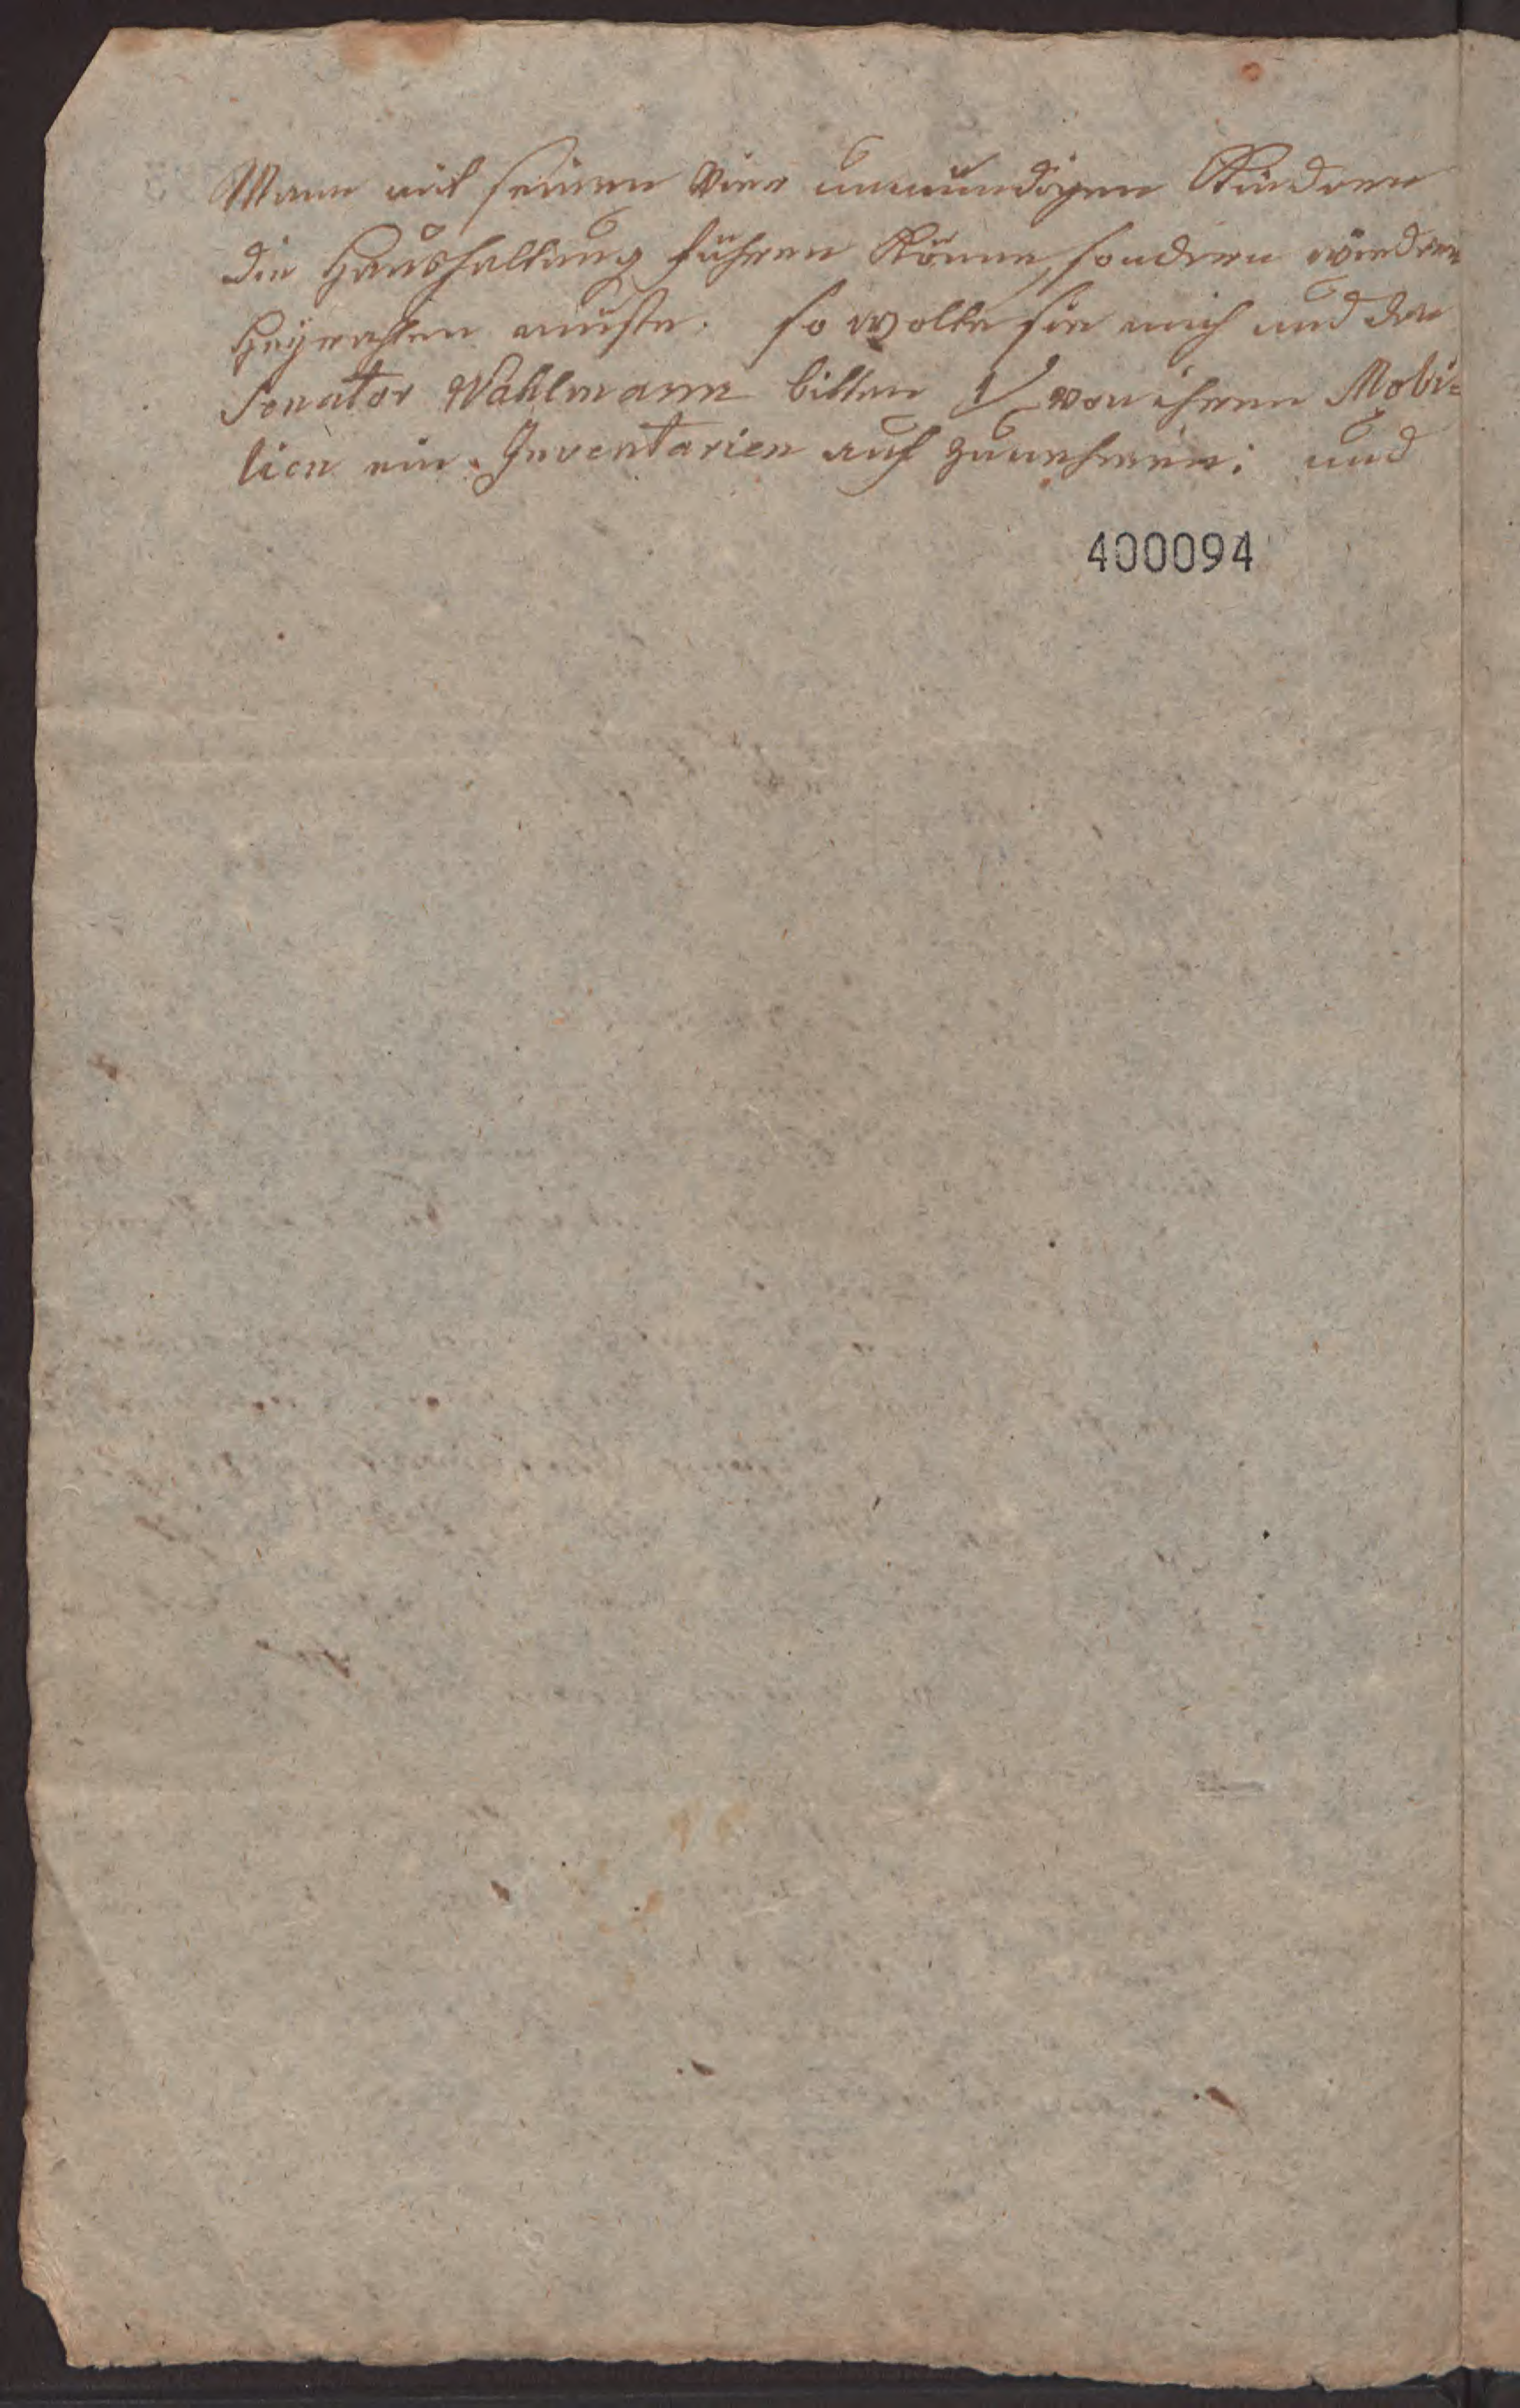 Mann mit seinen vier unmündigen Kindren
die Haushaltung führen könne, sondern wiedren
Heyrathen müste. so wolte sie mich und den
Senator Wahlmann bitten 1/ von ihren Mobi=
lien ein Inventarien auf zunehmen: und
400094